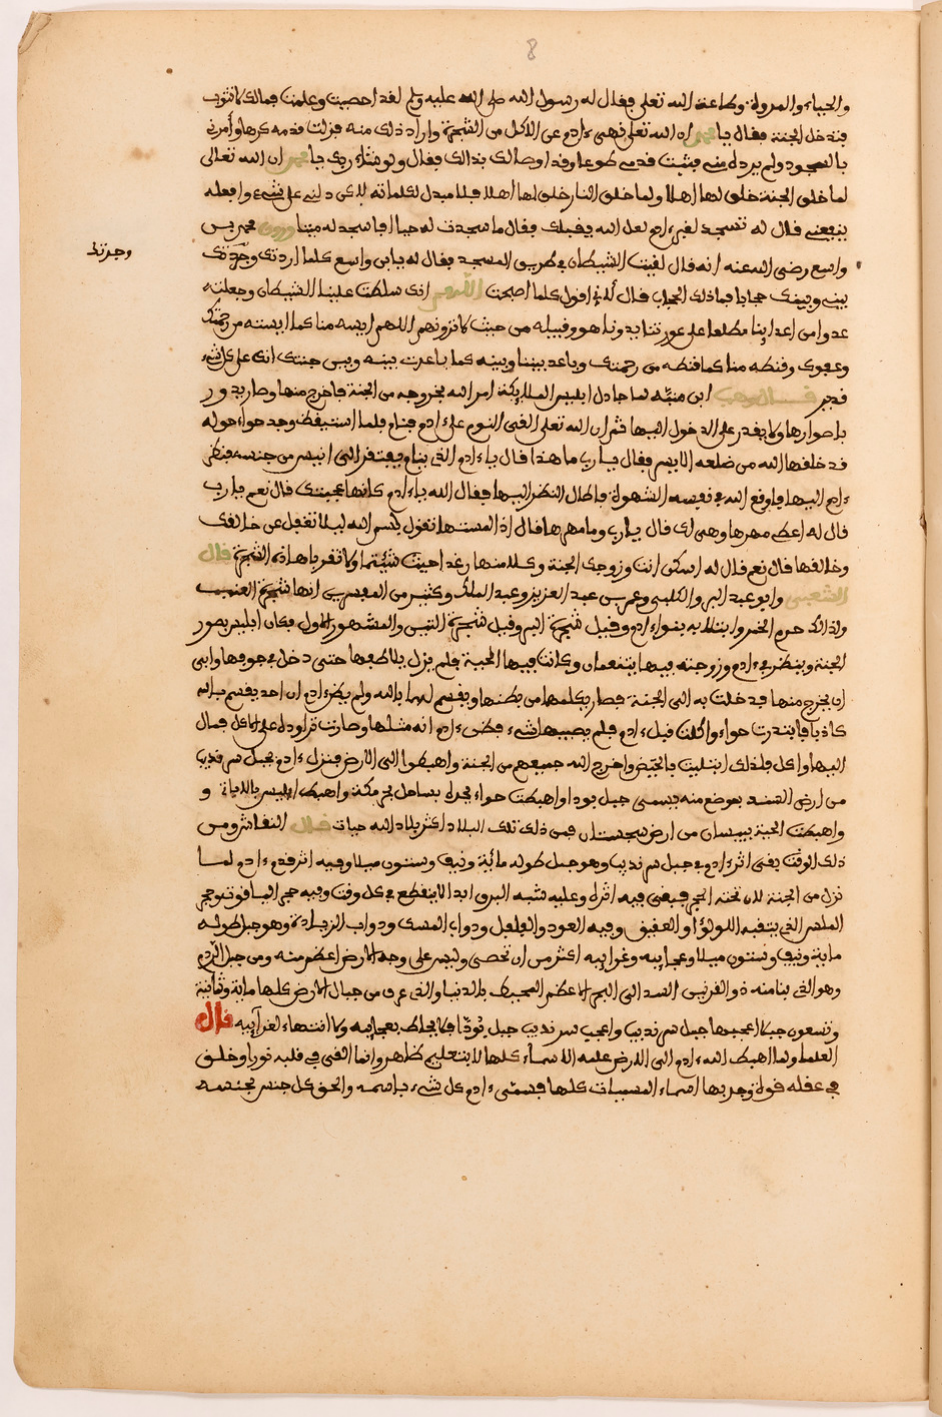 8
والحياء والمروة وطاعة الله تعلى فقال له رسول الله صلى الله عليه ولم لقد احصيت وعلمت فمالك لا تتوب
فتدخل الجنة فقال يا محمد ان الله تعلى نهى ءادم عن الاكل من الشجرة واراد ذلك منه فزلت قدمه كرها وأمرنى
بالسجود ولم يرده منى فثبت قدمى طوعا وقد اوصالك بذالك فقال ولو شاء ربى يا محمد ان الله تعالى
لما خلق الجنة خلق لها اهلا ولما خلق النار خلق لها اهلا فلا مبدل لكلماته لاكن دلنى على شىء وافعله
ينفعنى قال له تسجد لقبر ءادم لعل الله يقبلك فقال ما سجدت له حيا افاسجد له ميتا وروى محمد بن
واسع رضى الله عنه انه قال لقيت الشيطان فى طريق المسجد فقال له يا بن واسع كلما اردتك وجدتك
وجدتك
بينى وبينك حجابا فما ذلك الحجاب قال لأنى اقول كلما اصبحت اللهم انك سلطت علينا الشيطان وجعلته
عدوا من اعداينا مطلعا على عورتنا يرونا هو وقبيله من حيث لا نرونهم اللهم ايسه منا كما ايسته من رحمتك
وعفوك وقنطه منا كما قنطه من رحمتك وباعد بيننا وبينه كما باعدت بينه وبين جنتك انك على كل شىء
قدير قال وهب ابن منبه لما جادل ابليس الملايكة امر الله بخروجه من الجنة فاخرج منها وصار يدور
باصوارها ولا يقدر على الدخول اليها ثم ان الله تعلى القى النوم على ءادم فنام فلما استيقظ وجد حواء حوله
قد خلقها الله من ضلعه الايسر فقال يا رب ما هذا قال يا ءادم الذى ينام يفتقر الى انيس من جنسه فنظر
ءادم اليها فاوقع الله فى نفسه الشهوة فاطال النظر اليها فقال الله يا ءادم كانها عجبتك قال نعم يا رب
قال له اعط مهرها وهى لك قال يا رب وما مهرها قال اذا لمستها تقول بسم الله ليلا تغفل عن خالقك
وخالقها قال نعم قال له اسكن انت وزوجك الجنة وكلا منها رغدا حيث شئتما ولا تقربا هاذه الشجرة قال
الشعبى وابو عبد البر والكلبى وعمر بن عبد العزيز وعبد الملك وكثير من المفسرين انها شجرة العنب
ولذالك حرم الخمر وابتلا به بنواء ادم وقيل شجرة البر وقيل شجرة التين والمشهور الاول فكان ابليس يصور
الجنة وينظر فى ءادم وزوجته فيها يتنعمان وكانت فيها الحية فلم يزل يلاطفها حتى دخل فى جوفها وابى
ان يخرج منها فدخلت به الى الجنة فصار يكلمها من بطنها ويقسم لهما بالله ولم يظن ءادم ان احد يقسم بالله
كاذبا فابتدرت حواء واكلت قبل ءادم فلم يصبها شىء فظن ءادم انه مثلها وصارت تراوده على الاكل فمال
اليها واكل فلذلك ابتليت بالحيض واخرج الله جميعهم من الجنة واهبطوا الى الارض فنزل ءادم بجبل سرنديب
من ارض الهند بموضع منه يسمى جبل بود او اهبطت حواء بجدة بساحل بحر مكة واهبط ابليس و
واهبطت الحية بيسان من ارض سجستان فمن ذلك تلك البلاد اكثر بلاد الله حيات قال النقاش ومن
ذلك الوقت بقى اثر ءادم فى جبل سرنديب وهو جبل طوله مائة ونيف وستون ميلا وفيه اثر قدم ءادم لما
نزل من الجنة لان تحته الحجر فبقى فيه اثره وعليه شبه البرق ابدا لا ينقطع فى كل وقت وفيه حجر الياقوت وحجر
الماس الذى يثقبه اللولؤ او العقيق وفيه العود والفلفل ودواب المسك ودواب الزبادة وهو جبل طوله
ماية ونيف وستون ميلا وعجايبه وغرايبه اكثر من ان تحصى وليس على وجه الارض اعظم منه ومن جبل الردم
وهو الذى بنا منه ذو القرنين السد الى البحر الاعظم المحيط بالدنيا والذى عرف من جبال الارض كلها ماية وثمانية
وتسعون جبلا اعجبها جبل سرنديب واعجب سرنديب جبل نُودّا فلا يحاط بعجايبه ولا انتهاء لغرآيبه قال
العلما ولما اهبط الله ءادم الى الارض علمه الاسماء كلها لا بتعليم ظاهر وانما القى فى قلبه نورا وخلق
فى عقله قوة وجد بها اسماء المسميات كلها فسمى ءادم كل شىء باسمه والحق كل جنس بجنسه